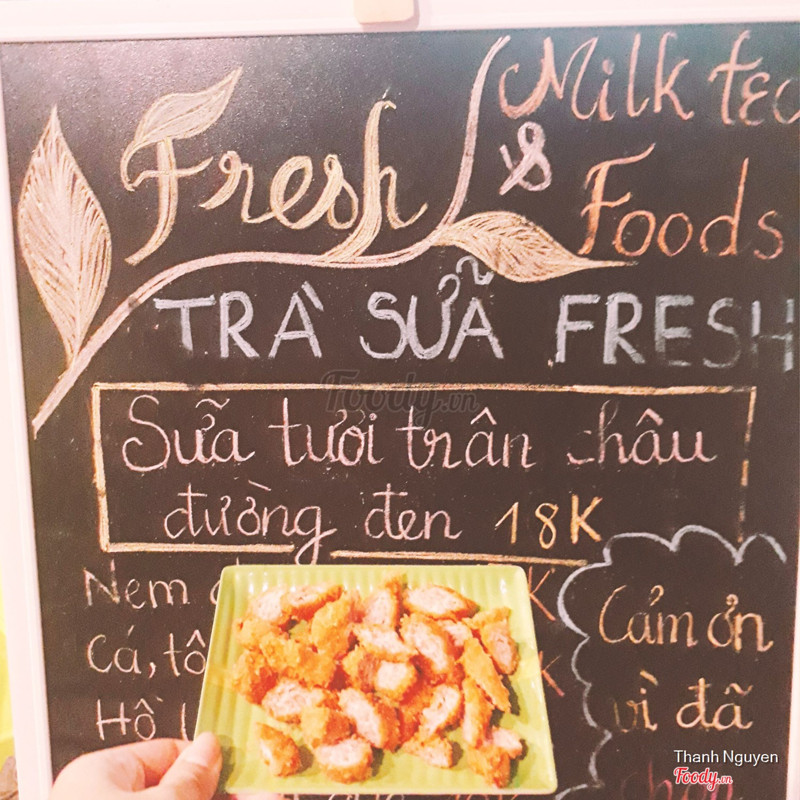 Fresh Milk tea
& Foods
TRÀ SỮA FRESH
Sữa tươi trân châu
đường đen 18K
Nem K
Cá, tô
Hồ
Cảm ơn
vì đã
Foody.vn
Thanh Nguyen
Foody.vn